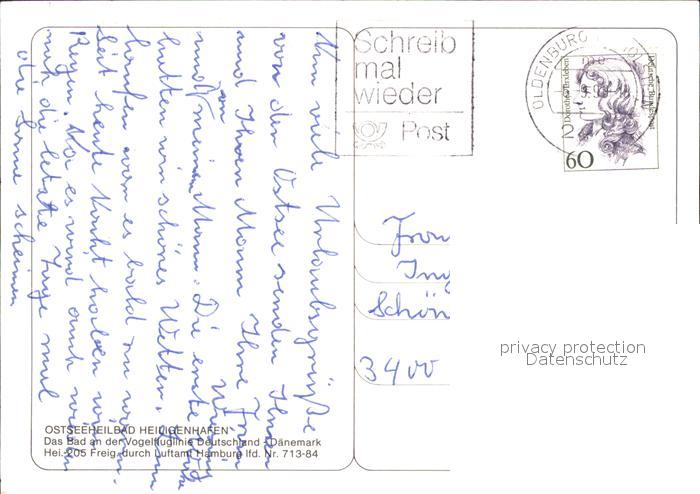 Nun viele Urlaubsgrüße
von der Ostsee senden Ihnen
und Ihrem Mann Ihre Frau
und von meinem Mann. Die erste
hatten wir schönes Wetter,
war es bald zu warm.
Seit heute Nacht haben wir
Regen. Na es wird auch wieder
die letzte Tage mal
die Sonne scheinen
Schreib
mal
wieder
Post
OLDENBURG
Dorothea Erxleben
60
Frau
Ing
Schön
3400
privacy protection
Datenschutz
OSTSEEHEILBAD HEILIGENHAFEN
Das Bad an der Vogelfluglinie Deutschland - Dänemark
Hei. 205 Freig. durch Luftamt Hamburg lfd. Nr. 713-84